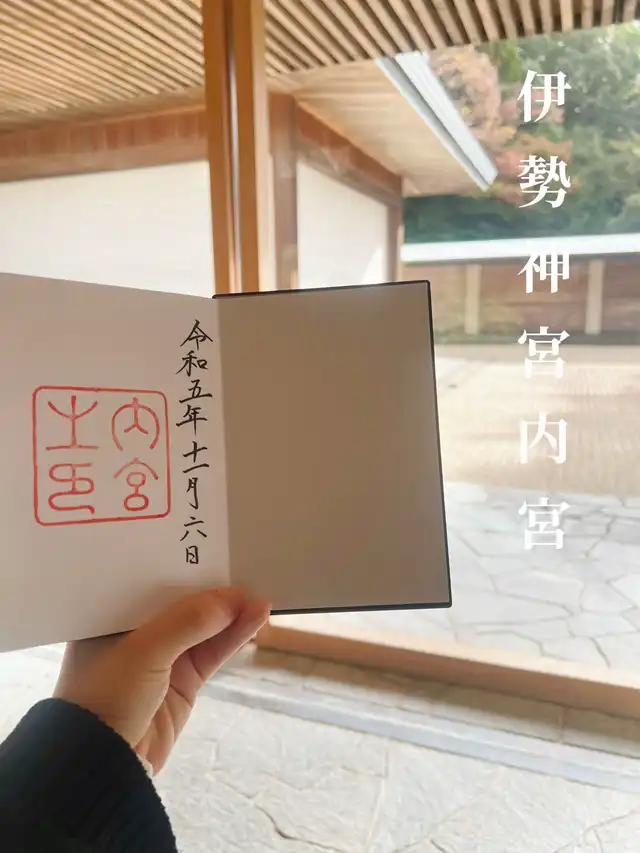 伊勢神宮内宮
令和五年十一月六日
内宮
之印